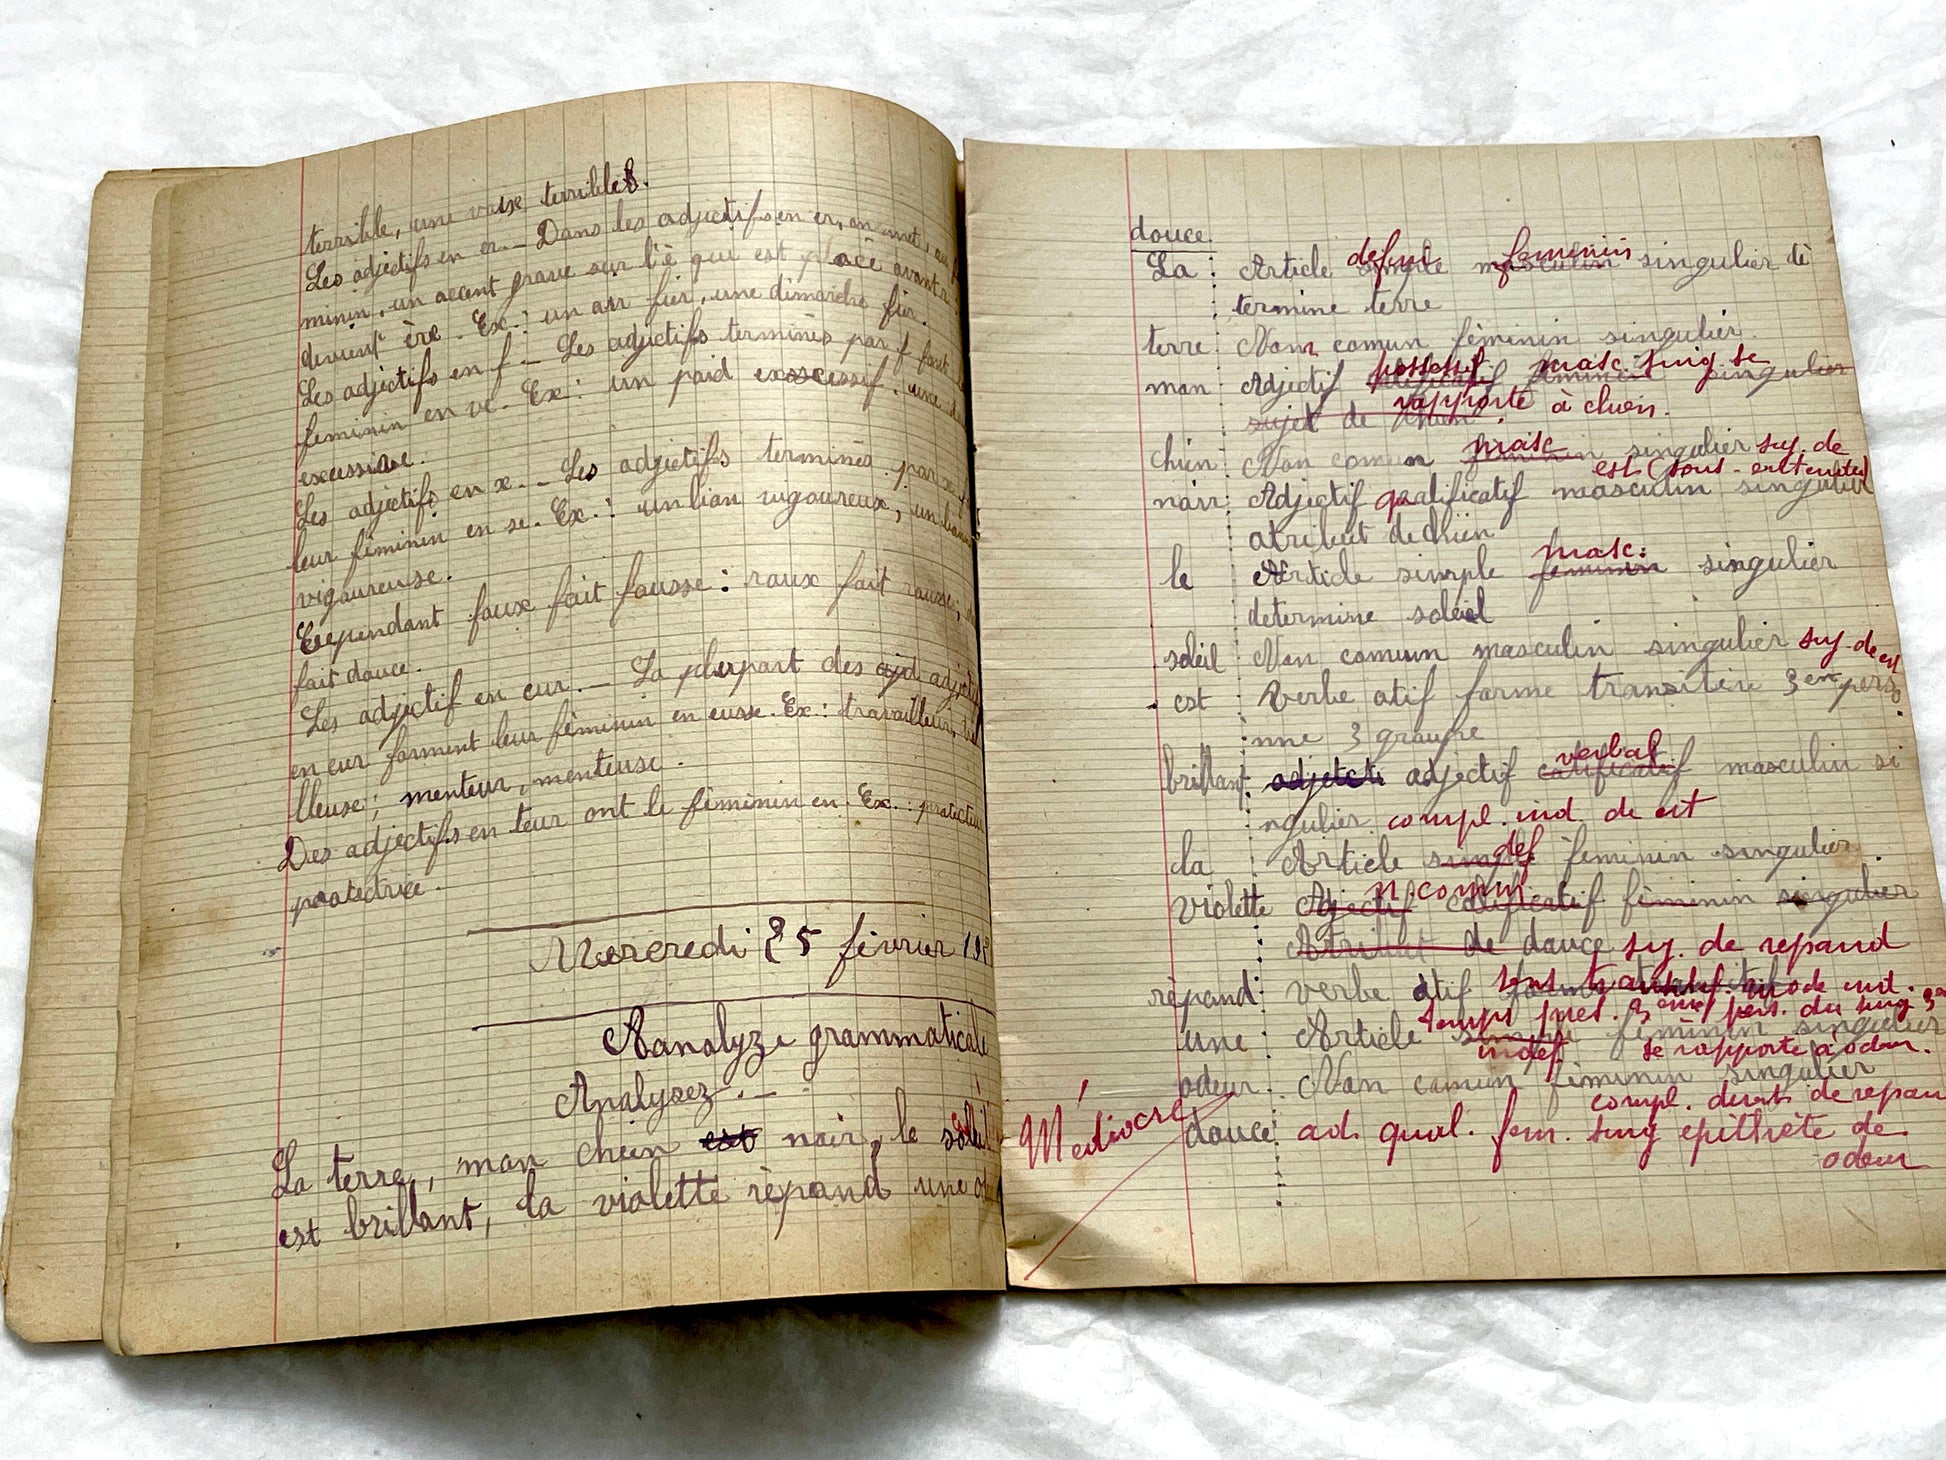 terrible, une valse terrible.
Les adjectifs en er. _ Dans les adjectifs en er, on met, au
minin, un accent grave sur l'è qui est placé avant r
devient ère. Ex.: un air fier, une dimarche fier.
Les adjectifs en f _ Les adjectifs terminés par f font
feminin en ve. Ex: un poid excessif, une
excessive.
Les adjectifs en x. _ Les adjectifs terminés par x
leur féminin en se. Ex.: un lion vigoureux, un
vigoureuse.
Cependant faux fait fausse: roux fait rousse;
fait douce.
Les adjectif en eur. _ La plupart des ajd adjectif
en eur forment leur féminin en eusse. Ex.: travailleur,
lleuse; menteur, menteuse.
Des adjectifs en teur ont le féminin en. Ex.: protecteur
protectrice.
Mercredi 25 février 19
Aanalyze grammaticale
Analysez._
La terre, mon chien est noir, le soleil
est brillant, la violette répand une
douce.
défini féminin
La: Article simple masculin singulier dé
termine terre
terre: Nom comun féminin singulier.
possessif masc. sing se
mon Adjectif féminin singulier
rapporte à chien.
sujet de chien
masc
chien: Non comun féminin singulier suj. de
est (sous-entendu)
noir: Adjectif qualificatif masculin singulier
atribut de chien
masc:
le Article simple feminin singulier
determine soleil
soleil: Non comun masculin singulier suj. de est
est: Verbe atif forme transitive 3em perso
nne 3 groupe
verbal
brillant. adjectif masculin si
ngulier compl. ind. de est
def
la Article simple féminin singulier.
n comm
violette Adjectif calificatif féminin singulier
Atribut de douce suj. de repand
répand: verbe atif sens transitif. mode ind.
temps pres. 3eme pers. du sing
une: Article féminin singulier
indef. se rapporte à odeur.
odeur. Non comun féminin singulier
compl. direct de repan
Médiocre
douce: ad. qual. fem. sing epithète de
odeur